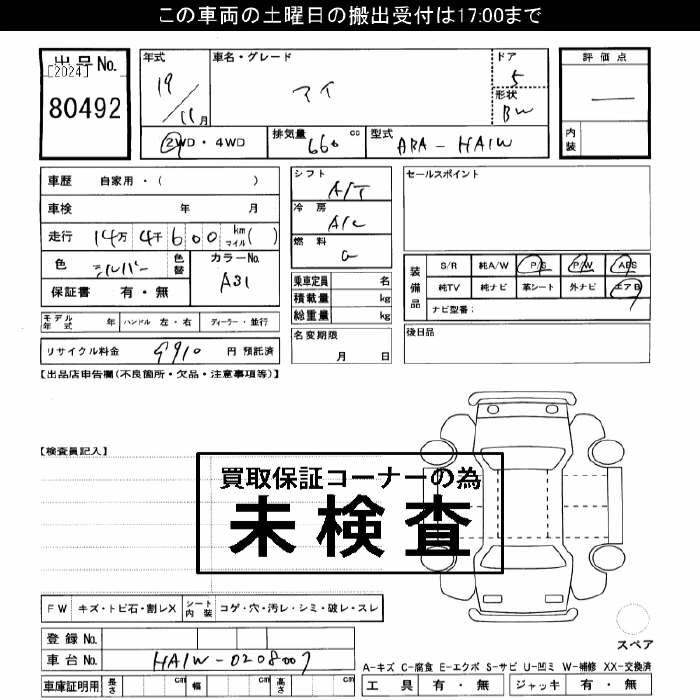 この車両の土曜日の搬出受付は17:00まで
出品No.
[2024]
80492
年式
19/11月
車名・グレード
アイ
ドア
5
形状
BW
評価点
内装
2WD・4WD
排気量 660 cc
型式 ABA-HA1W
車歴 自家用・( )
車検 年 月
走行 14万 4千 600 km マイル( )
色 シルバー
色替
カラーNo. A31
保証書 有・無
シフト A/T
冷房 A/C
燃料 G
乗車定員 名
積載量 kg
総重量 kg
セールスポイント
装備品
S/R 純A/W P/S P/W ABS
純TV 純ナビ 革シート 外ナビ エアB
ナビ型番:
モデル年式 年 ハンドル 左・右 ディーラー・並行
名変期限 月 日
後日品
リサイクル料金 9910 円 預託済
【出品店申告欄(不良箇所・欠品・注意事項等)】
【検査員記入】
買取保証コーナーの為
未検査
FW キズ・トビ石・割レX シート内装 コゲ・穴・汚レ・シミ・破レ・スレ
スペア
登録No.
車台No. HA1W-0208007
A-キズ C-腐食 E-エクボ S-サビ U-凹ミ W-補修 XX-交換済
車庫証明用 長さ cm 幅 cm 高さ cm
工具 有・無 ジャッキ 有・無